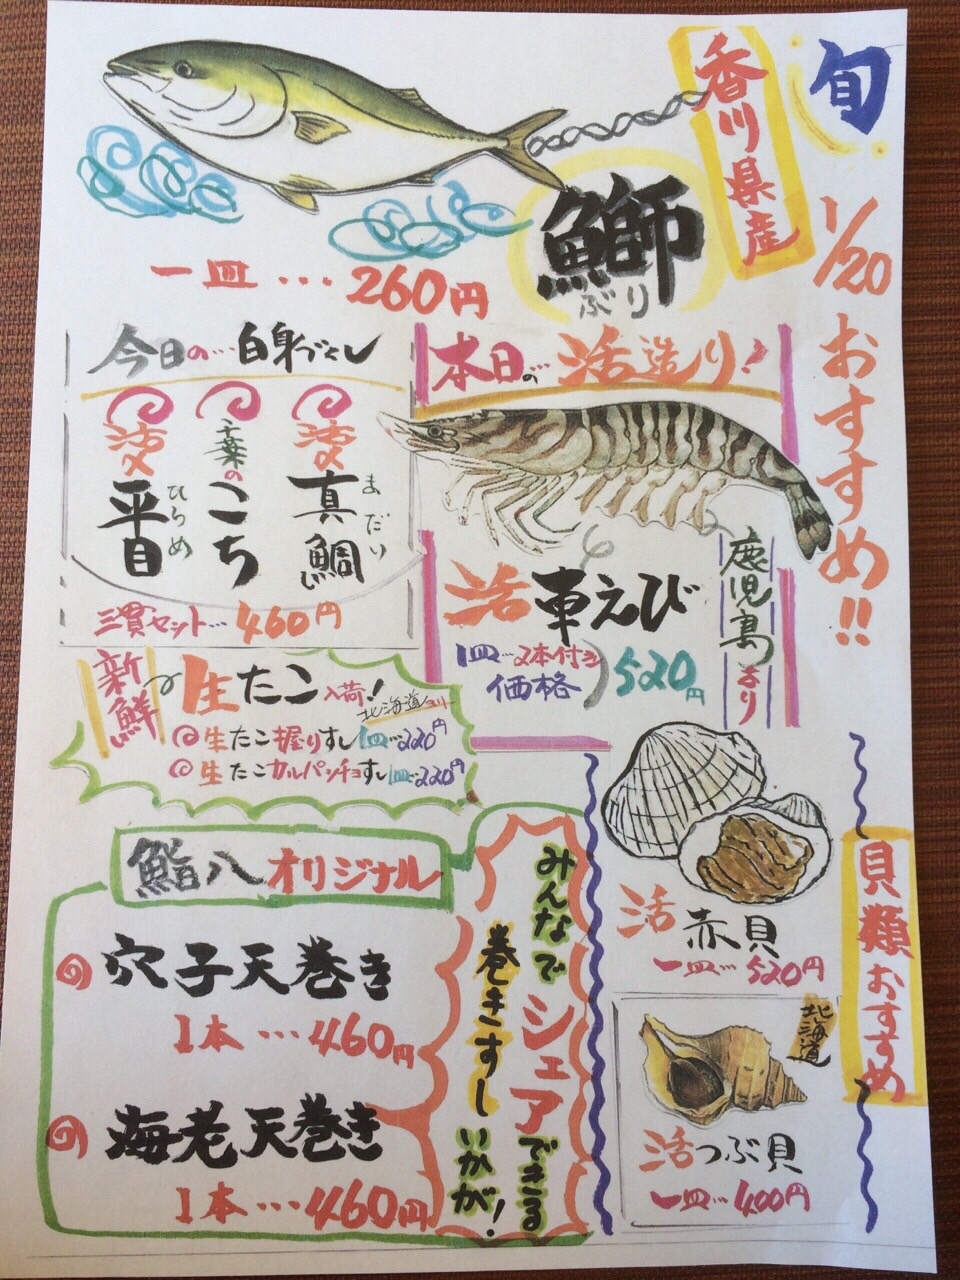 旬
1/20 おすすめ!!
香川県産
鰤
ぶり
一皿…260円
本日の…活造り!
鹿児島より
活車えび
1皿…2本付き
価格
520円
今日の…白身づくし
活〆真鯛
まだい
千葉のこち
活〆平目
ひらめ
三貫セット…460円
新鮮
生たこ入荷!
北海道より
生たこ握りすし1皿…220円
生たこカルパッチョすし1皿…220円
貝類おすすめ
活赤貝
一皿…520円
北海道
活つぶ貝
一皿…400円
鮨八オリジナル
穴子天巻き
1本…460円
海老天巻き
1本…460円
みんなでシェアできる
巻きすしいかが!